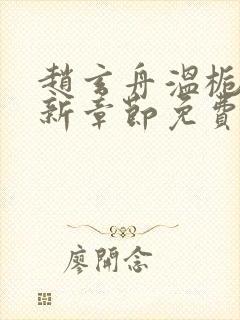 趙玄舟溫梔
新章節免費
廖開念